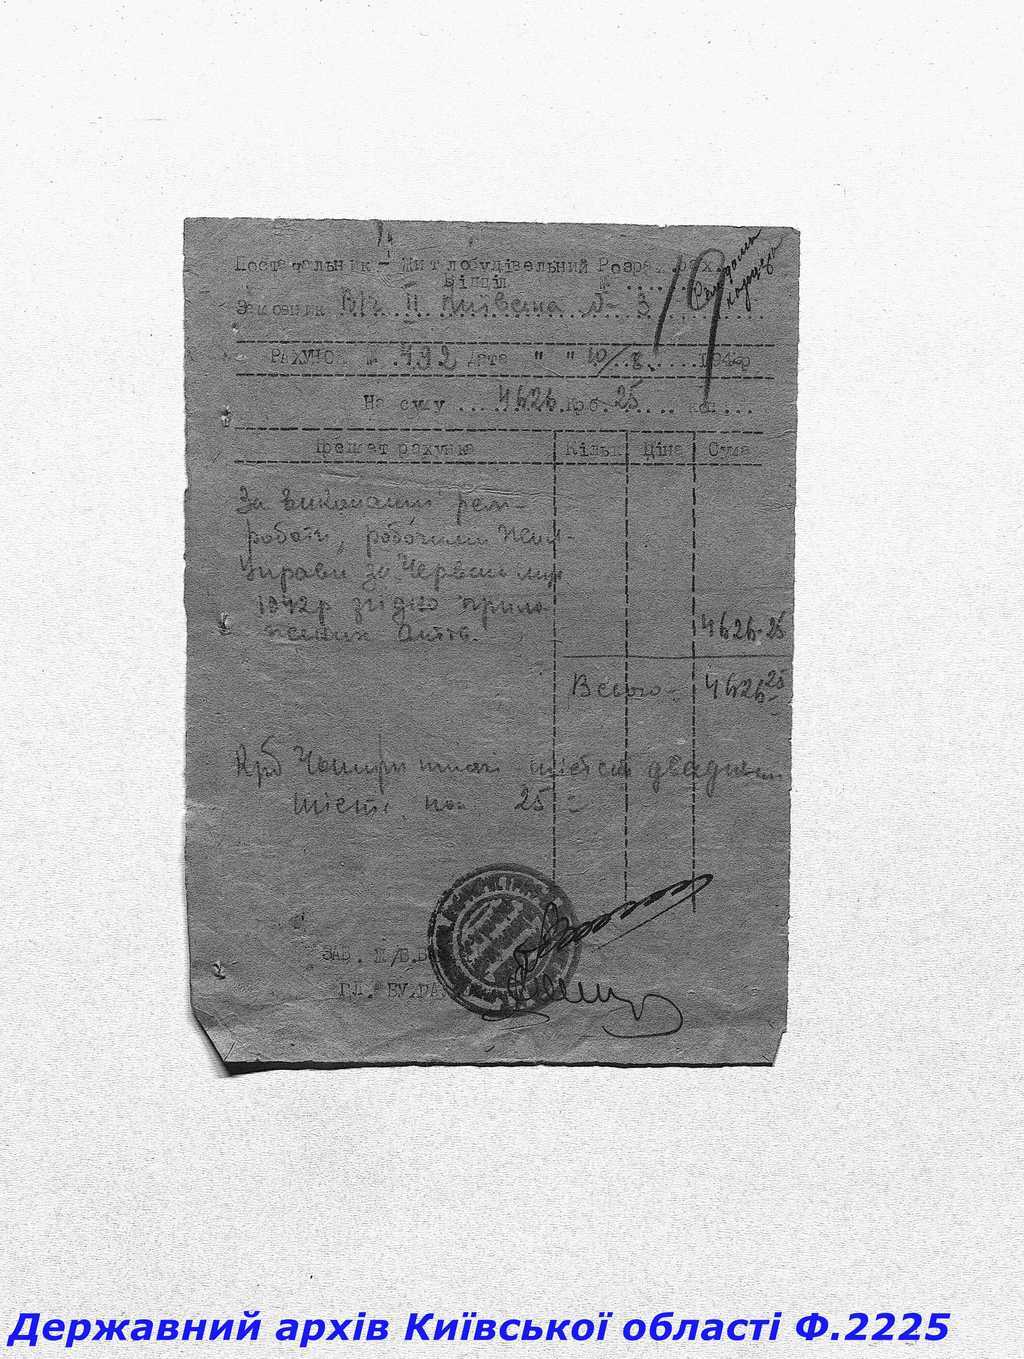 19
Постачальник – Житлобудівельний Розрах. рах.
Відділ №
Замовник В/ч II Київська № 3
РАХУНОК № 492 Дата " " 10/8. 194 р
На суму 4626 Крб. 25 коп
Предмет рахунка Кільк Ціна Сума
За виконанні рем-
роботи, робочими Жил-
Управи за Червень м-ць
1942р згідно прило
жених Актів. 4626-25
Всього - 4626-25
Крб Чотири тисячі шістсот двадцять
шість, коп 25 =
ЗАВ.
ГЛ. БУХГА
Державний архів Київської області Ф.2225